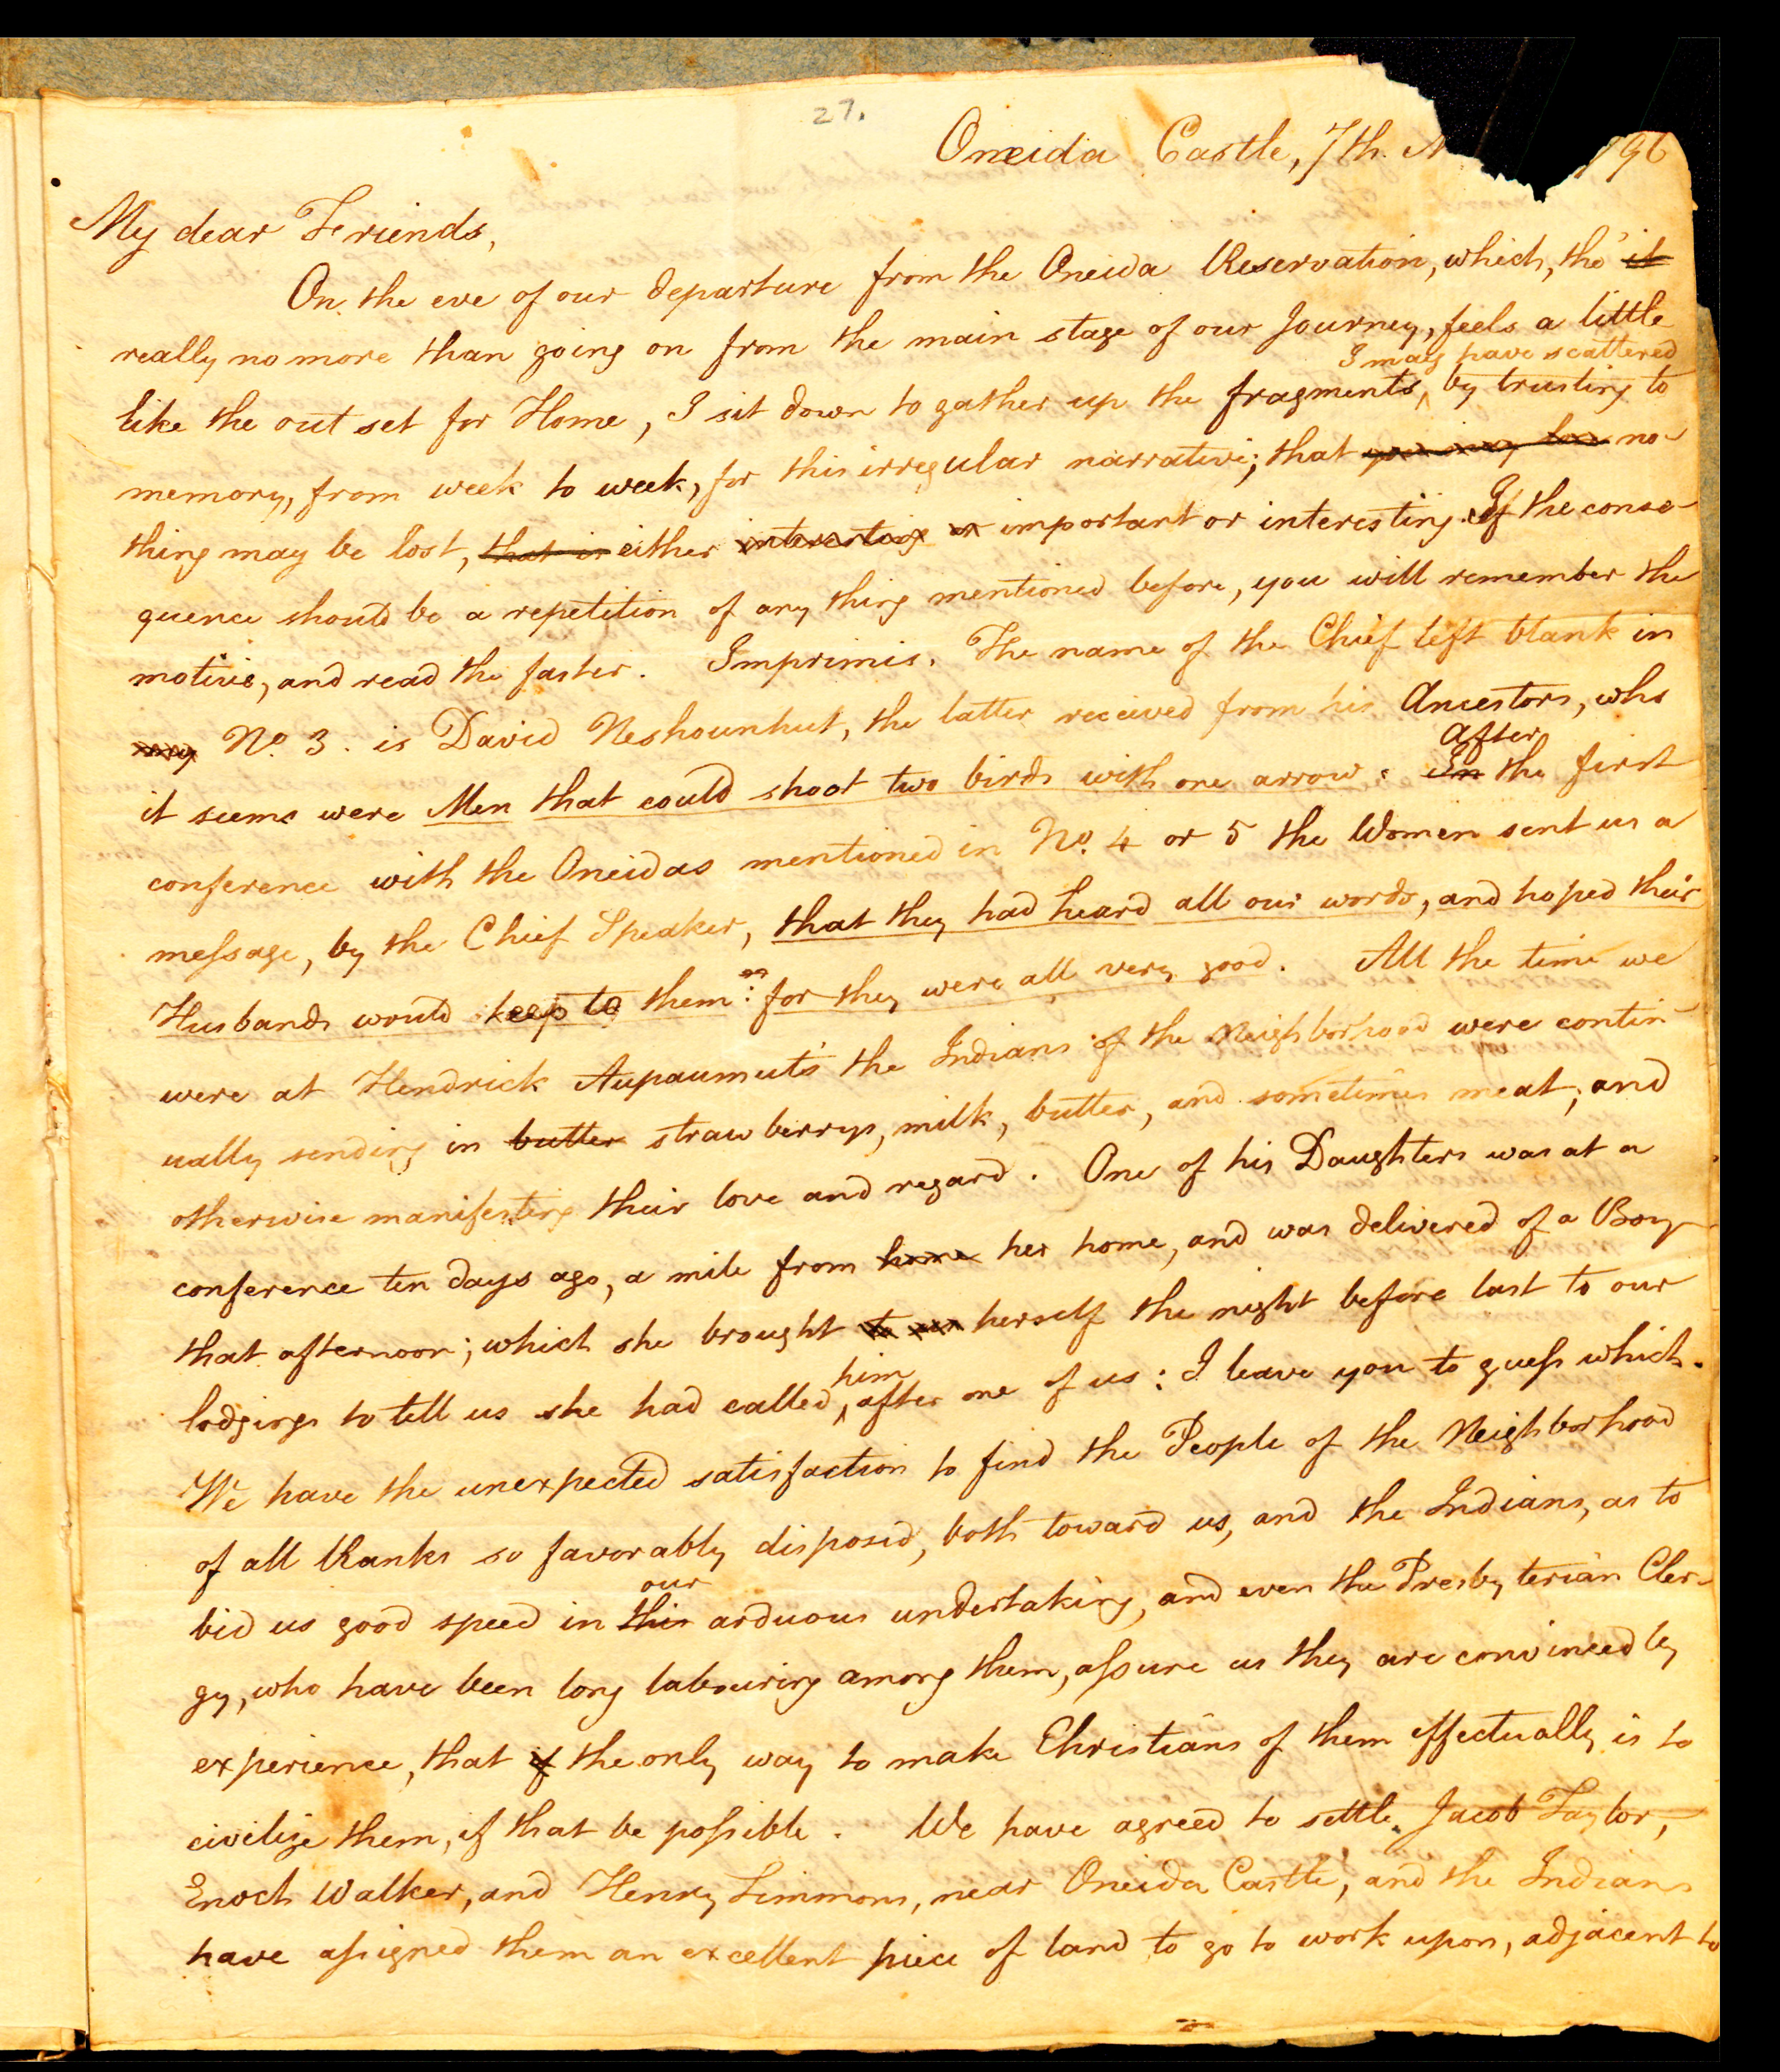 27.
Oneida Castle, 7th. 196
My dear Friends,
On the eve of our departure from the Oneida Reservation, which, tho' it
really no more than going on from the main stage of our Journey, feels a little
I may have scattered
like the out set for Home, I sit down to gather up the fragments, by trusting to
memory, from week to week, for this irregular narrative; that you may lose no-
thing may be lost, that is either interesting or important or interesting. If the conse-
quence should be a repetition of any thing mentioned before, you will remember the
motive, and read the faster. Imprimis. The name of the Chief left blank in
my No. 3. is David Neshounhut, the latter received from his Ancestors, who
After
it seems were Men that could shoot two birds with one arrow. In the first
conference with the Oneidas mentioned in No. 4 or 5 the Women sent us a
meſsage, by the Chief Speaker, that they had heard all our words, and hoped their
Husbands would keep to them: for they were all very good. All the time we
were at Hendrick Aupaumut's the Indians of the Neighborhood were contin-
ually sending in butter strawberrys, milk, butter, and sometimes meat; and
otherwise manifesting their love and regard. One of his Daughters was at a
conference ten days ago, a mile from home her home, and was delivered of a Boy
that afternoon; which she brought herself the night before last to our
him
lodgings to tell us she had called, after one of us: I leave you to gueſs which.
We have the unexpected satisfaction to find the People of the Neighborhood
of all Ranks so favorably disposed, both toward us, and the Indians, as to
our
bid us good speed in this arduous undertaking, and even the Presbyterian Cler-
gy, who have been long labouring among them, aſsure us they are convinced by
experience, that if the only way to make Christians of them effectually is to
civilize them, if that be poſsible. We have agreed to settle Jacob Taylor,
Enoch Walker, and Henry Simmons, near Oneida Castle, and the Indians
have aſsigned them an excellent piece of land to go to work upon, adjacent to